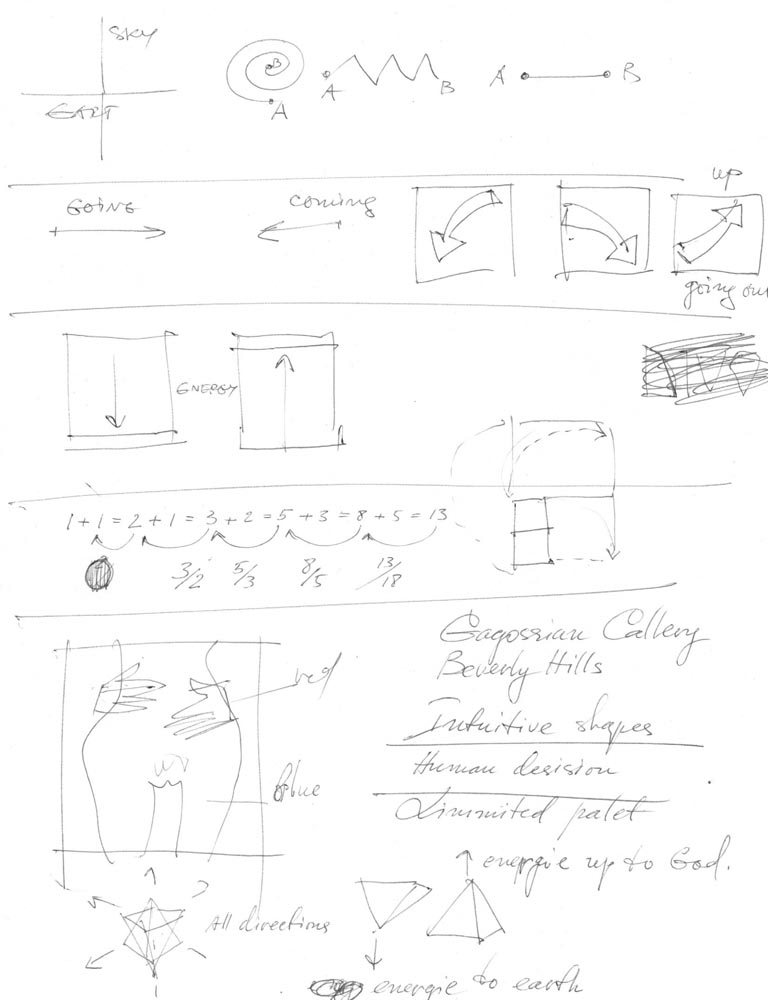 SKY
EART
B
A
A
B
A
B
GOING
coming
up
going out
ENERGY
1+1=2+1=3+2=5+3=8+5=13
3/2 5/3 8/5 13/18
Gagossian Callery
Beverly Hills
red
Intuitive shapes
Human desision
Blue
Limmited palet
energie up to God.
All directions
energie to earth